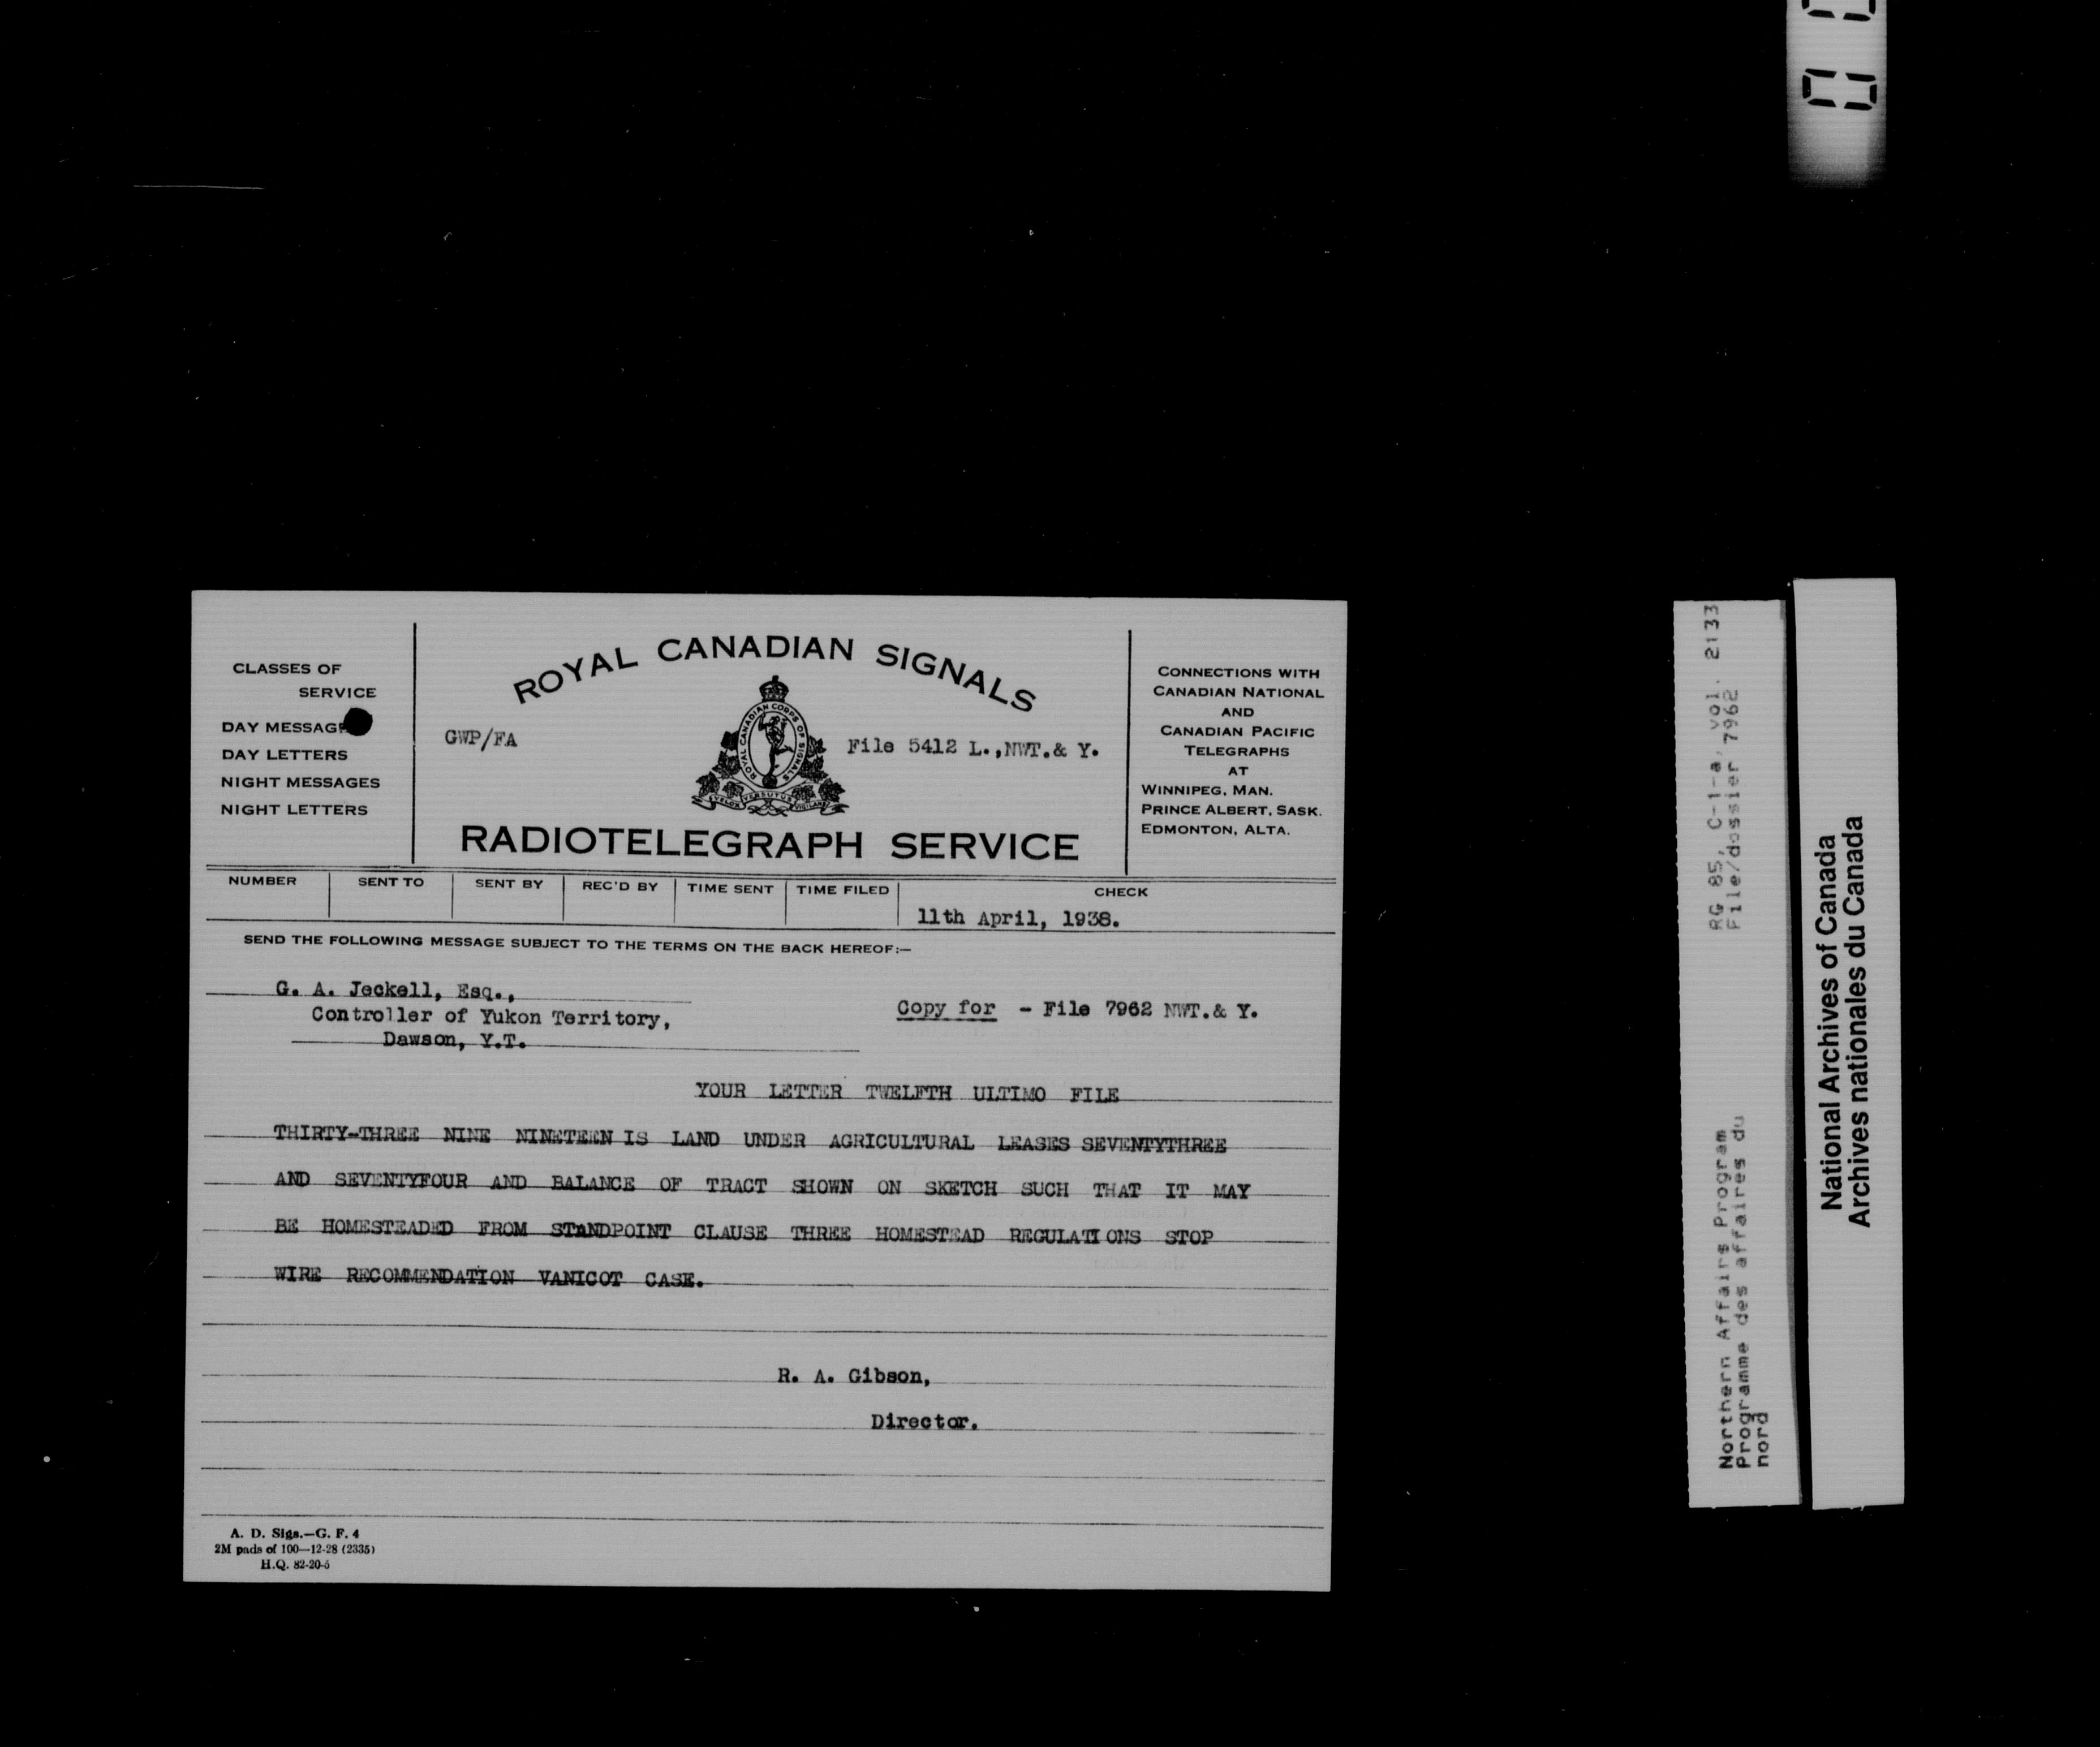 CLASSES OF
SERVICE
DAY MESSAGE
DAY LETTERS
NIGHT MESSAGES
NIGHT LETTERS
ROYAL CANADIAN SIGNALS
GWP/FA
ROYAL CANADIAN CORPS OF SIGNALS
VELOX VERSUTUS VIGILANS
File 5412 L.,NWT.& Y.
RADIOTELEGRAPH SERVICE
CONNECTIONS WITH
CANADIAN NATIONAL
AND
CANADIAN PACIFIC
TELEGRAPHS
AT
WINNIPEG, MAN.
PRINCE ALBERT, SASK.
EDMONTON, ALTA.
NUMBER SENT TO SENT BY REC'D BY TIME SENT TIME FILED CHECK
11th April, 1938.
SEND THE FOLLOWING MESSAGE SUBJECT TO THE TERMS ON THE BACK HEREOF:—
G. A. Jeckell, Esq.,
Controller of Yukon Territory,
Dawson, Y.T.
Copy for - File 7962 NWT.& Y.
YOUR LETTER TWELFTH ULTIMO FILE
THIRTY-THREE NINE NINETEEN IS LAND UNDER AGRICULTURAL LEASES SEVENTYTHREE
AND SEVENTYFOUR AND BALANCE OF TRACT SHOWN ON SKETCH SUCH THAT IT MAY
BE HOMESTEADED FROM STANDPOINT CLAUSE THREE HOMESTEAD REGULATIONS STOP
WIRE RECOMMENDATION VANICOT CASE.
R. A. Gibson,
Director.
A. D. Sigs.—G. F. 4
2M pads of 100—12-28 (2335)
H.Q. 82-20-5
Northern Affairs Program
Programme des affaires du
nord
RG 85, C-1-a, vol. 2133
File/dossier 7962
National Archives of Canada
Archives nationales du Canada